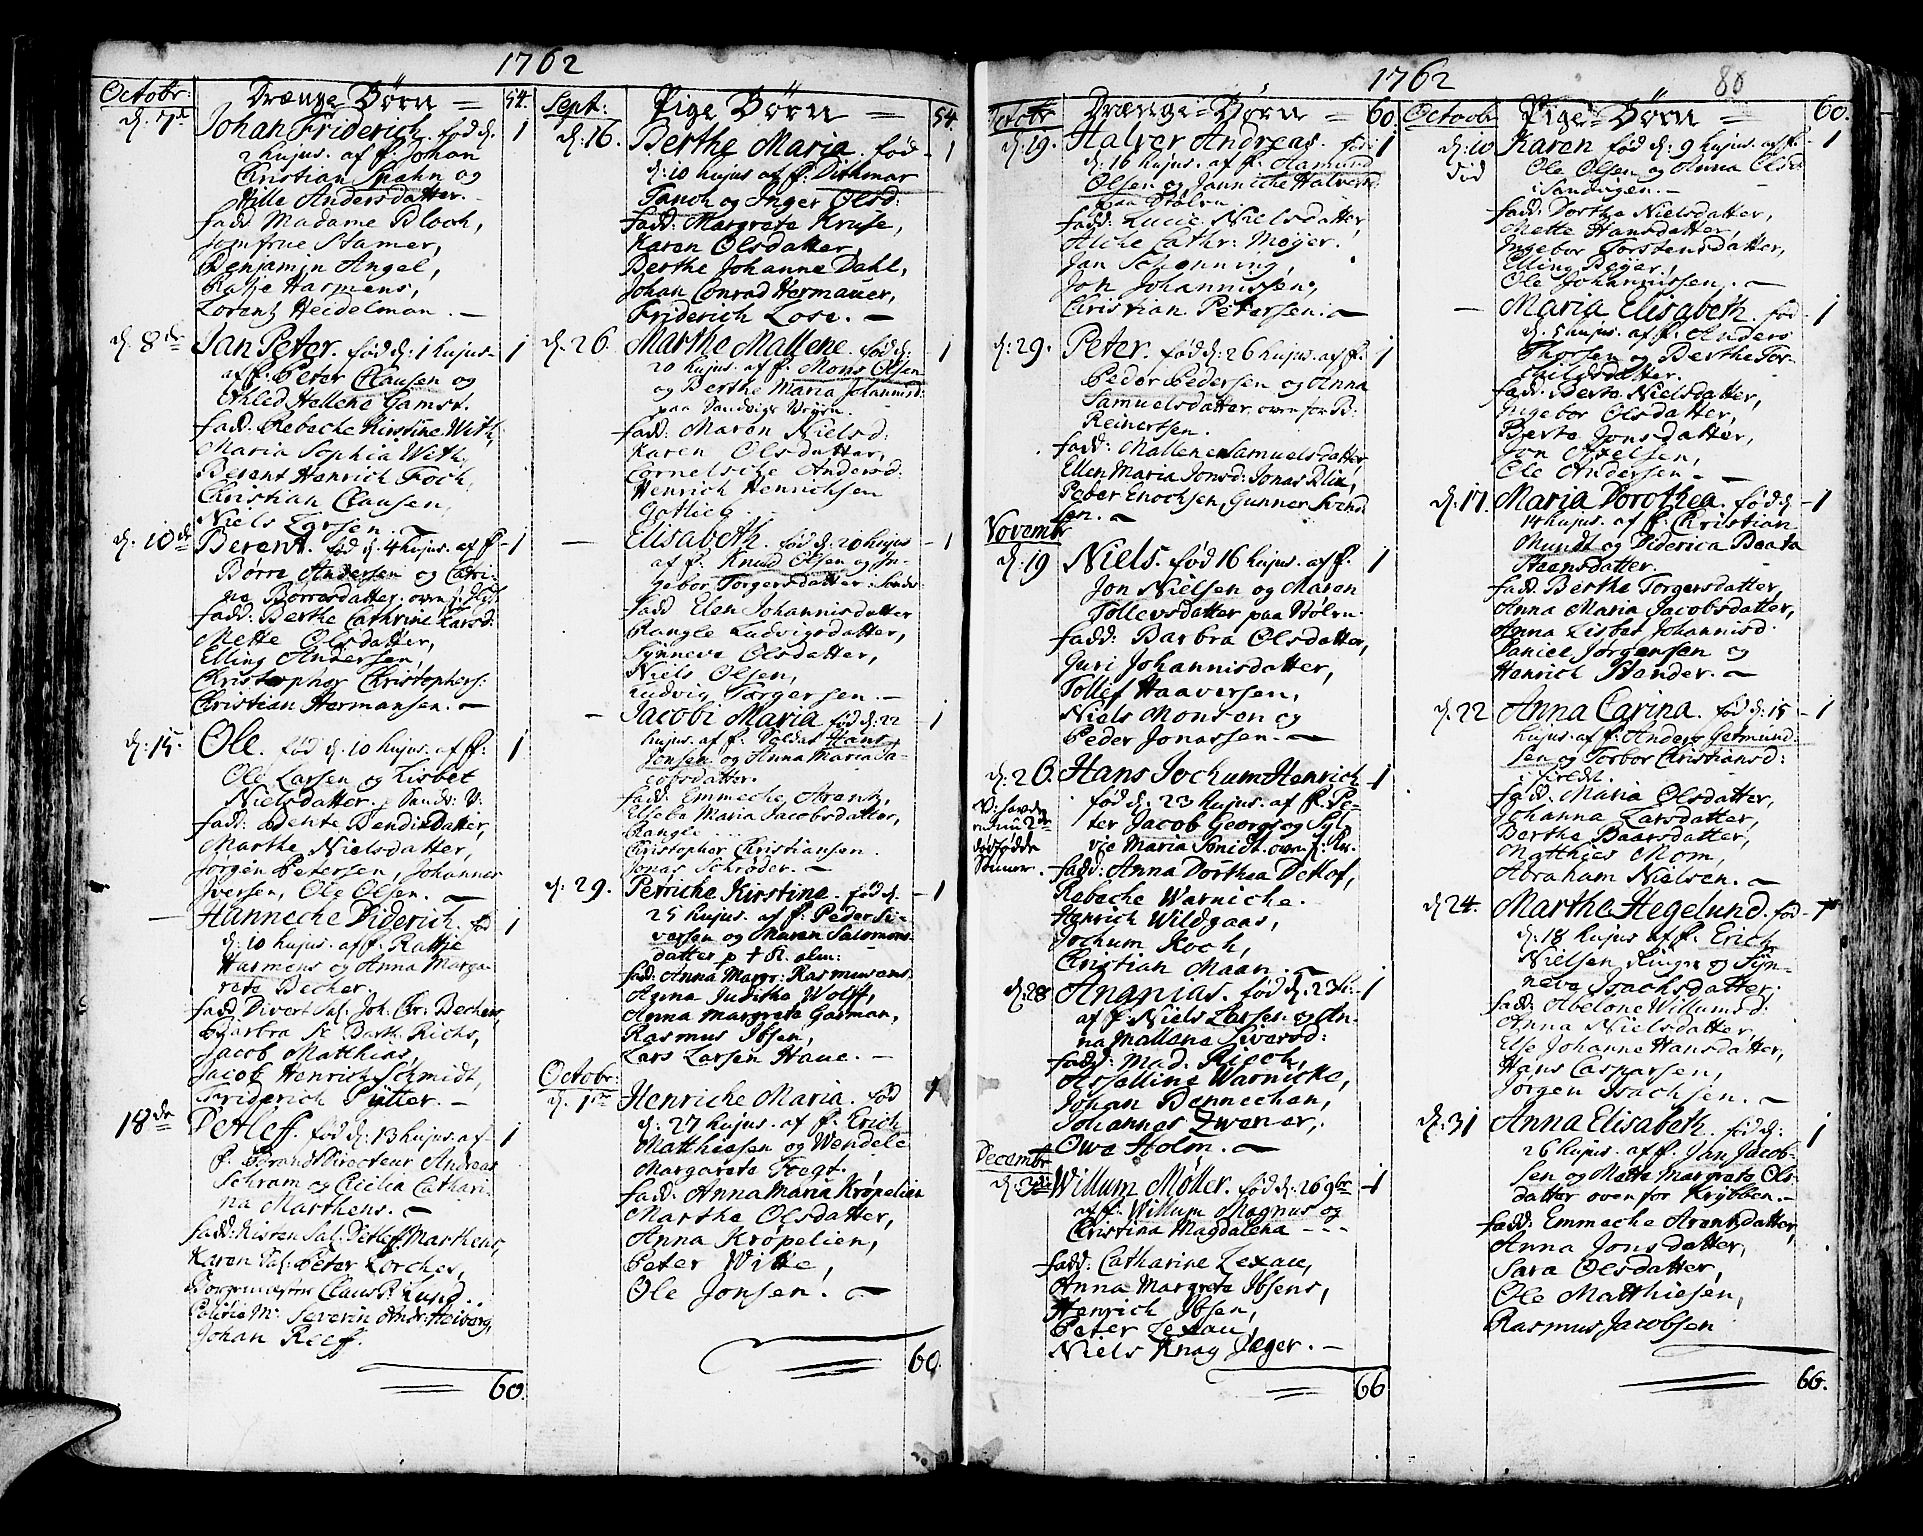 1762
Octobr: Drænge Børn = 54.
d. 7de Johan Friderich. fød d. 1
2 hujus. af f. Johan
Christian Spahn og
Hille Andersdatter. -
fadd: Madame Bloch,
Jomfrue Stamer,
Benjamin Angel,
Ratje Harmens,
Lorentz Heidelman. -
d. 8de Jan Peter. fød d: 1 hujus- 1
af f: Peter Clausen og
Ethled Hellene Gamst.
fadd: Rebeche Kirstine With,
Maria Sophia With,
Berent Henrich Foch,
Christian Clausen,
Niels Larsen. -
d. 10de Berent. fød d. 4 hujus. af f. - 1
Børre Andersen og Cathri-
ne Børresdatter.
fadd: Berthe Cathrine Larsd:
Mette Olsdatter,
Elling Andersen,
Christopher Christophers:
Christian Hermansen. -
d: 15. Ole. fød d. 10 hujus. af f: 1
Ole Larsen og Lisbet
Nielsdatter. Sandv: V.
fadd: Bente Bendixdatter,
Marthe Nielsdatter,
Jørgen Petersen, Johannes
Iversen, Ole Olsen. -
- Hannecke Diderich. fød 1
d. 10 hujus. af f. Rattje
Harmens og Anna Marga-
reta Becher.
fadd Divert Sal: Joh. Chr: Bechers,
Barbra Sr Barth. Richs,
Jacob Matthias,
Jacob Henrich Schmidt,
Friderich Pütter. -
18de Detleff. fød d: 13 hujus. af - 1
f. BrandDirecteur Andreas
Schram og Cicilia Cathari-
na Marthens. -
fadd: Kisten Sal: Detleff Marthens,
Karen Sal: Peter Lorches,
Borgemester Claus Lund.
Politie Mr Severin Andr: Heiberg,
Johan Reeff.
60.
Sept: Pige Børn = 54.
d: 16. Berthe Maria. fød - 1
d: 10 hujus af f: Dithmar
Tanch og Inger Olsd:
fadd: Margrete Kruse,
Karen Olsdatter,
Berthe Johanne Dahl,
Johan Conrad Hermauer,
Friderich Lose. -
d. 26. Marthe Mallene. fød d: 1
20 hujus. af f. Mons Olsen
og Berthe Maria Johannisd:
paa Sandvigs Veyen.
fadd: Maren Nielsd:
Karen Olsdatter,
Cornelsche Andersd:
Henrich Henrichsen
Gotlieg.
- Elisabeth. fød d: 20 hujus - 1
af f. Knud Olsen og In-
gebor Torgersdatter:
fadd Elen Johannisdatter
Rangle Ludvigsdatter,
Synneve Olsdatter,
Niels Olsen,
Ludvig Torgersen. -
- Jacobi Maria fød d: 22 - 1
hujus. af f: Soldat Hans
Jonsen og Anna Maria Ja-
cobsdatter.
fadd: Emmeche Arentz,
Elsebe Maria Jacobsdatter,
Rangle ...
Christopher Christiansen.
Jonas Schrøder. -
d: 29. Petriche Kirstine. fød d. - 1
25 hujus. af f: Peder Si-
versen og Maren Salomons-
datter p † K. alm:
fad: Anna Margr: Rasmusens
Anna Juditha Wolff,
Anna Margrete Garman,
Rasmus Ibsen,
Lars Larsen Haue. -
Octobr:
d. 1ste Henriche Maria. fød 1
d: 27 hujus. af f. Erich
Matthiesen og Wendele
Margareta Fregt.
fadd: Anna Maria Krøpelien
Marthe Olsdatter,
Anna Krøpelien,
Peter Witte,
Ole Jonsen. -
60.
1762 80
Octobr Drænge-Børn = 60.
d: 19. Halver Andreas. fød 1
d: 16 hujus. af f. Aamund
Olsen og Janniche Halversd:
paa Stølen
fadd: Lucie Nielsdatter,
Aliche Cathr: Møyer.
Jan Schønning,
Jon Johannissen,
Christian Petersen. -
d: 29. Peter. fød d: 26 hujus. af f. 1
Peder Pedersen og Anna
Samuelsdatter. oven for B:
Reinertsen.
fadd: Mallene Samuelsdatter,
Ellen Maria Jonsd: Jonas Blix,
Peter Enochsen, Gunner Svend
sen. -
Novembr
d: 19 Niels. fød 16 hujus. af f. 1
Jon Nielsen og Maren
Tollevsdatter paa Stølen.
fadd: Barbra Olsdatter,
Guri Johannisdatter,
Tollef Haaversen,
Niels Monsen og
Peder Jonassen. -
d: 26. Hans Jochum Henrich 1
fød d. 23 hujus. af f. Pe-
ter Jacob Georgs og Syl-
vie Maria Smidt.
fadd: Anna Dorthea Detlof,
Rebeche Warniche.
Henrich Wildgaas,
Jochum Koch,
Christian Maan. -
d: 28 Ananias. fød d. 23 - 1
af f: Niels Larsen og An-
na Mallena Siversd:
fadd: Mad. Rieck,
Asselline Warnicke,
Johan Bennechen,
Johannes Zwerver,
Owe Holm. -
Decembr
d. 3die Willum Møller. fød d: 26 9br - 1
af f. Willum Magnus og
Christina Magdalena - - -
fadd: Catharine Lexau,
Anna Margrete Ibsens,
Henrich Ibsen,
Peter Lexau,
Niels Knag Jæger. -
66
Octobr Pige-Børn = 60.
d: 10 Karen fød d: 9 hujus. af f. 1
Ole Olsen og Anna Olsd:
i Sandvigen. -
fadd: Dorthe Nielsdatter,
Mette Hansdatter,
Ingebor Torstensdatter,
Elling Beyer,
Ole Johannissen. -
- Maria Elisabeth. fød - 1
d. 5 hujus. af f: Anders
Thorsen og Berthe Tor-
childsdatter.
fadd: Berte Nielsdatter,
Ingebor Olsdatter,
Berte Jonsdatter,
Jon Axelsen,
Ole Andersen -
d: 17. Maria Dorothea. fød d - 1
14 hujus. af f: Christian
Mundt og Diderica Beata
Steensdatter.
fadd: Berthe Torgersdatter,
Anna Maria Jacobsdatter,
Anna Lisbet Johannisd.
Daniel Jørgensen og
Henrich Stender. -
d. 22 Anna Carina. fød d: 15 - 1
hujus. af f: Anders Germund-
sen og Torbor Christiansd:
fadd: Maria Olsdatter,
Johanna Larsdatter,
Berthe Baarsdatter,
Matthies Mom,
Abraham Nielsen. -
d 24. Marthe Hegelund. fød - 1
d. 18 hujus af f. Erich
Nielsen Ringe og Syn-
neve Isachsdatter:
fadd: Abelone Willumsd:
Anna Nielsdatter
Else Johanne Hansdatter,
Hans Caspersen,
Jørgen Isachsen. -
d: 31 Anna Elisabeth. fød d: 1
26 hujus. af f. Jan Jacob-
sen og Mette Margrete Ols-
datter oven for Krybben. -
fadd: Emmeche Arentzdatter,
Anna Jonsdatter,
Sara Olsdatter,
Ole Matthiesen,
Rasmus Jacobsen
66.